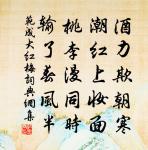 酒力欺朝寒
潮红上妆面
桃李漫同时
输了春风半
范成大红梅词典网集